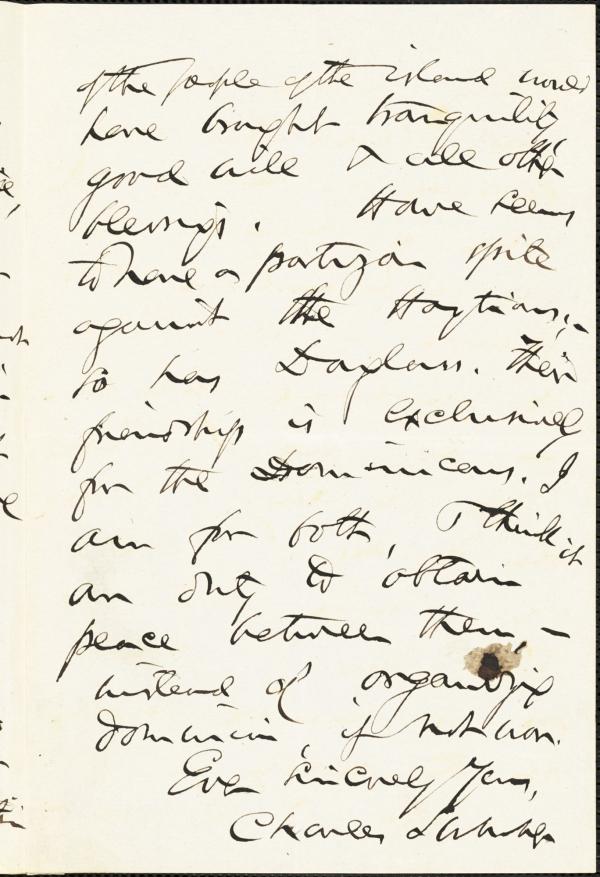 of the people of the island would
have brought tranquility,
good will & all other
blessings. Howe seems
to have a partizan spite
against the Haytians;-
so has Douglass. Their
friendship is exclusively
for the Dominicans. I
am for both, & think it
our duty to obtain
peace between them -
instead of organizing
dominion, if not war.
Ever sincerely Yours,
Charles Sumner